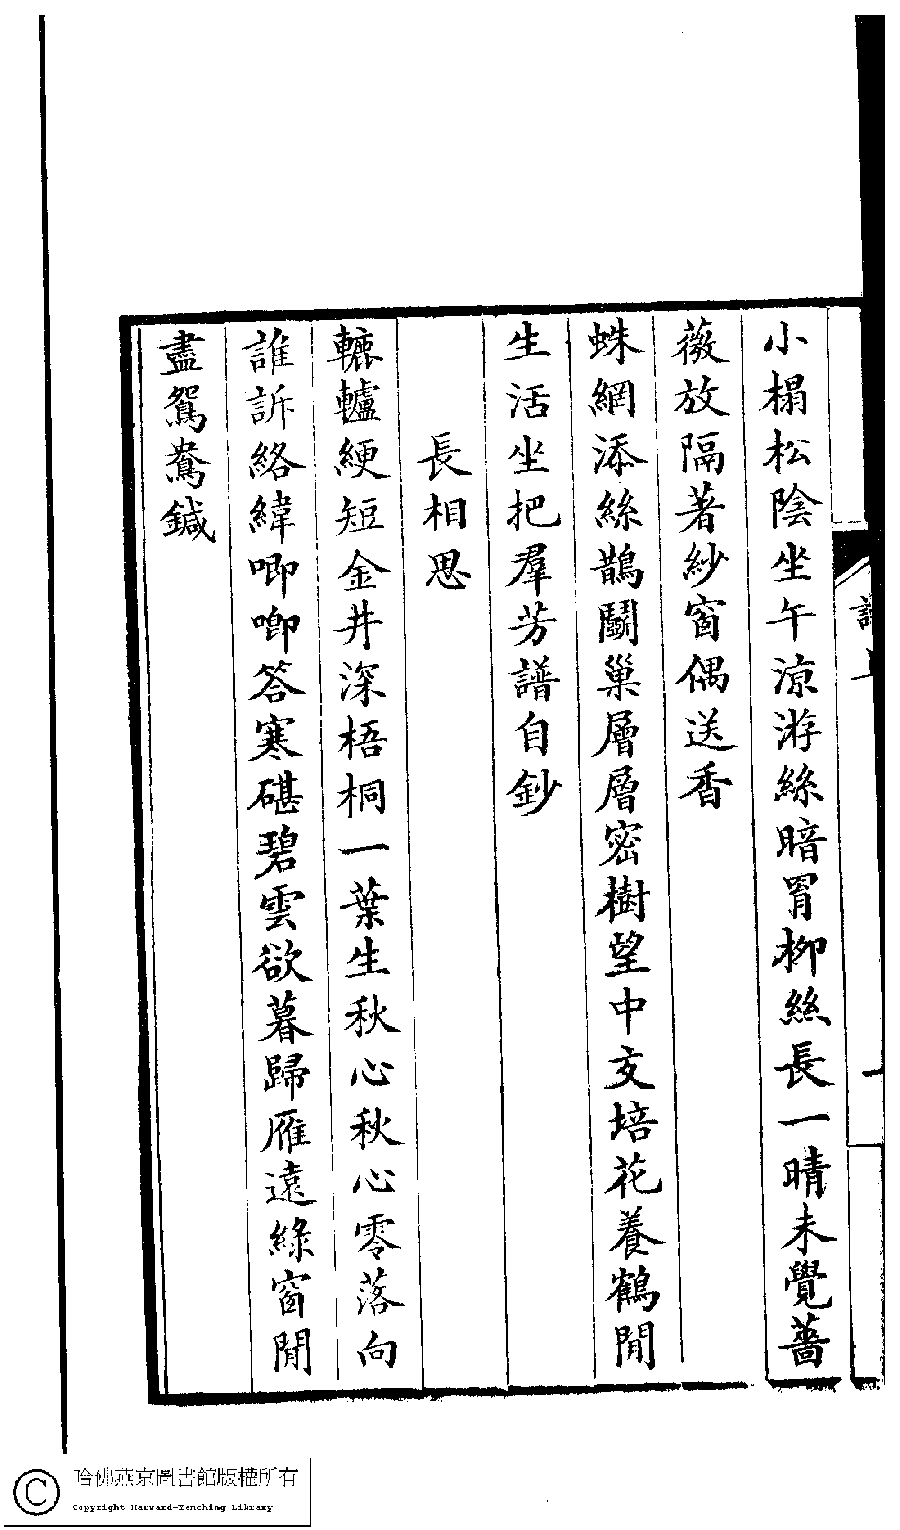 小榻松陰坐午涼游絲暗罥柳絲長一晴未覺薔
薇放隔著紗窗偶送香
蛛網添絲鵲鬭巢層層密樹望中交培花養鶴閒
生活坐把羣芳譜自鈔
長相思
轆轤綆短金井深梧桐一葉生秋心秋心零落向
誰訴絡緯唧唧答寒碪碧雲欲暮歸雁遠綠窗閒
盡鴛鴦鍼
哈佛燕京圖書館版權所有
Copyright Harvard-Yenching Library